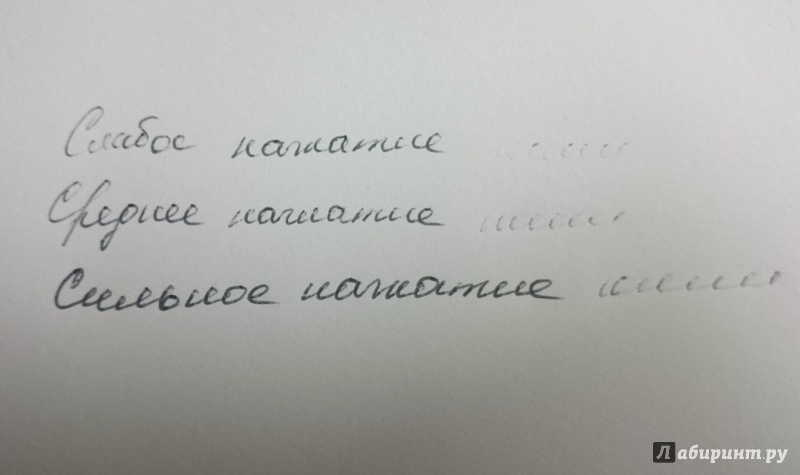 Слабое нажатие
Среднее нажатие
Сильное нажатие
Лабиринт.ру